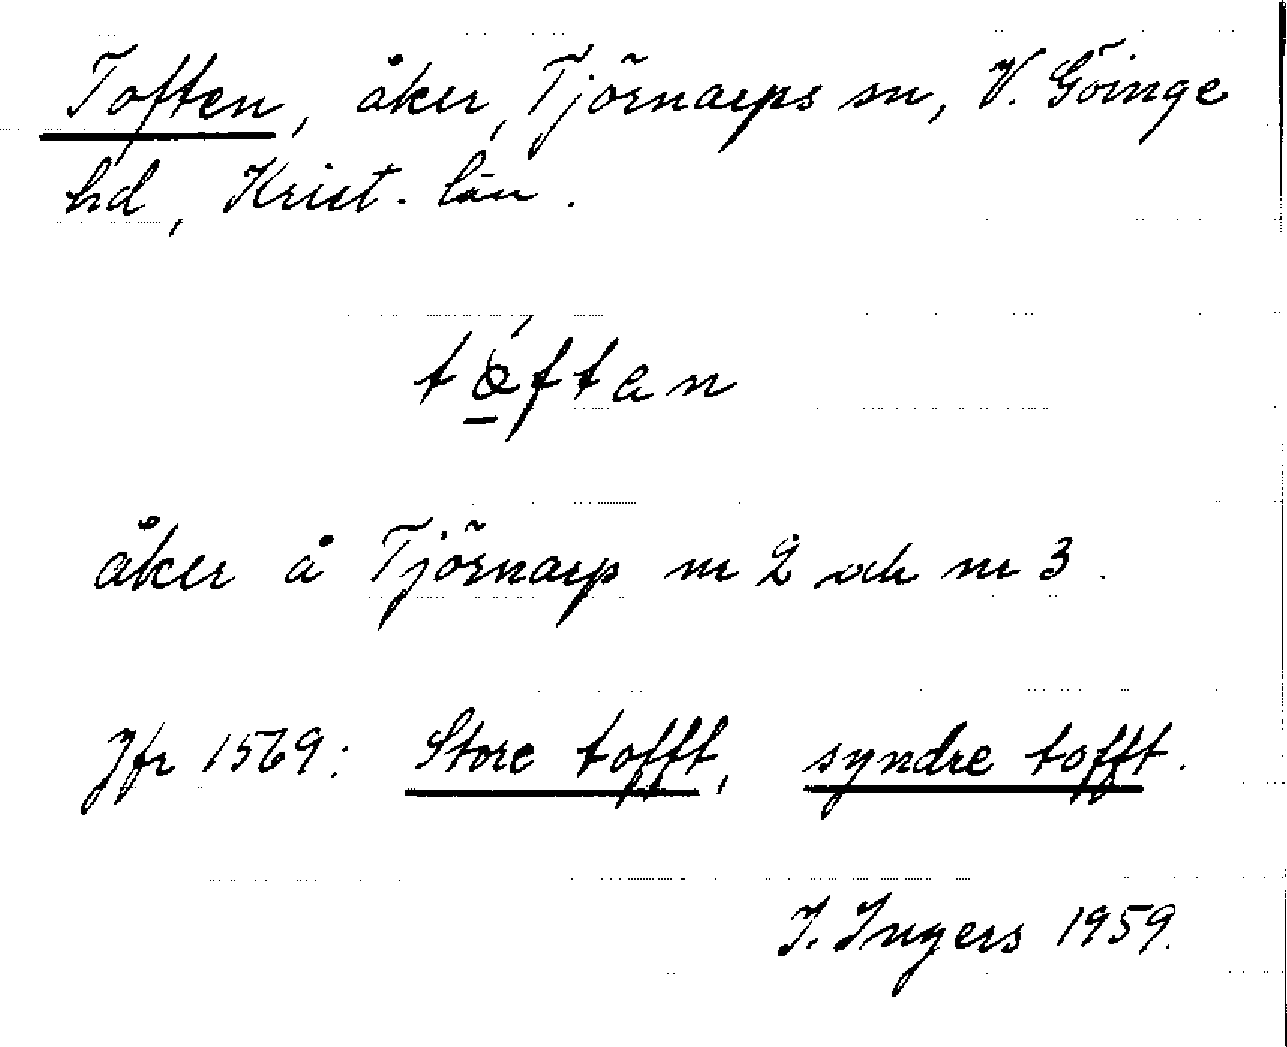 Toften, åker, Tjörnarps sn, V. Göinge
hd, Krist. län.
tǿ̱ftan
åker å Tjörnarp nr 2 och nr 3.
Jfr 1569: Store tofft, syndre tofft.
I. Ingers 1959.